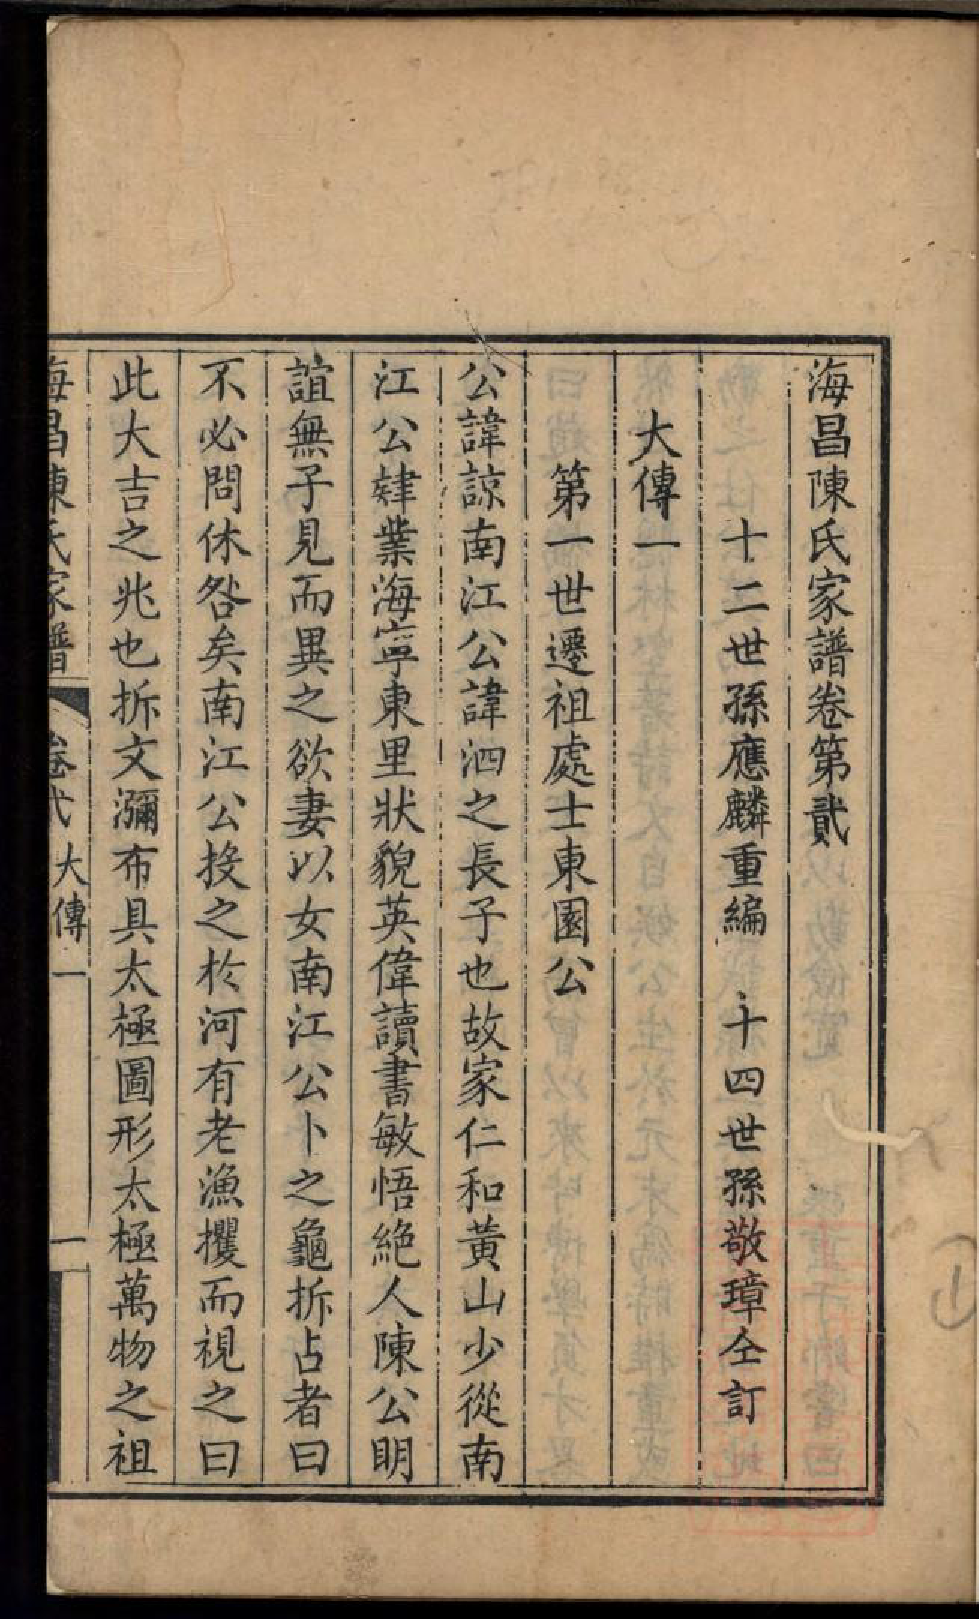 海昌陳氏家譜卷第貳
十二世孫應麟重編 十四世孫敬璋仝訂
大傳一
第一世遷祖處士東園公
公諱諒南江公諱泗之長子也故家仁和黃山少從南
江公肄業海寧東里狀貌英偉讀書敏悟絶人陳公明
誼無子見而異之欲妻以女南江公卜之龜拆占者曰
不必問休咎矣南江公投之於河有老漁攫而視之曰
此大吉之兆也拆文瀰布具太極圖形太極萬物之祖
海昌陳氏家譜 卷弍 大傳一 一